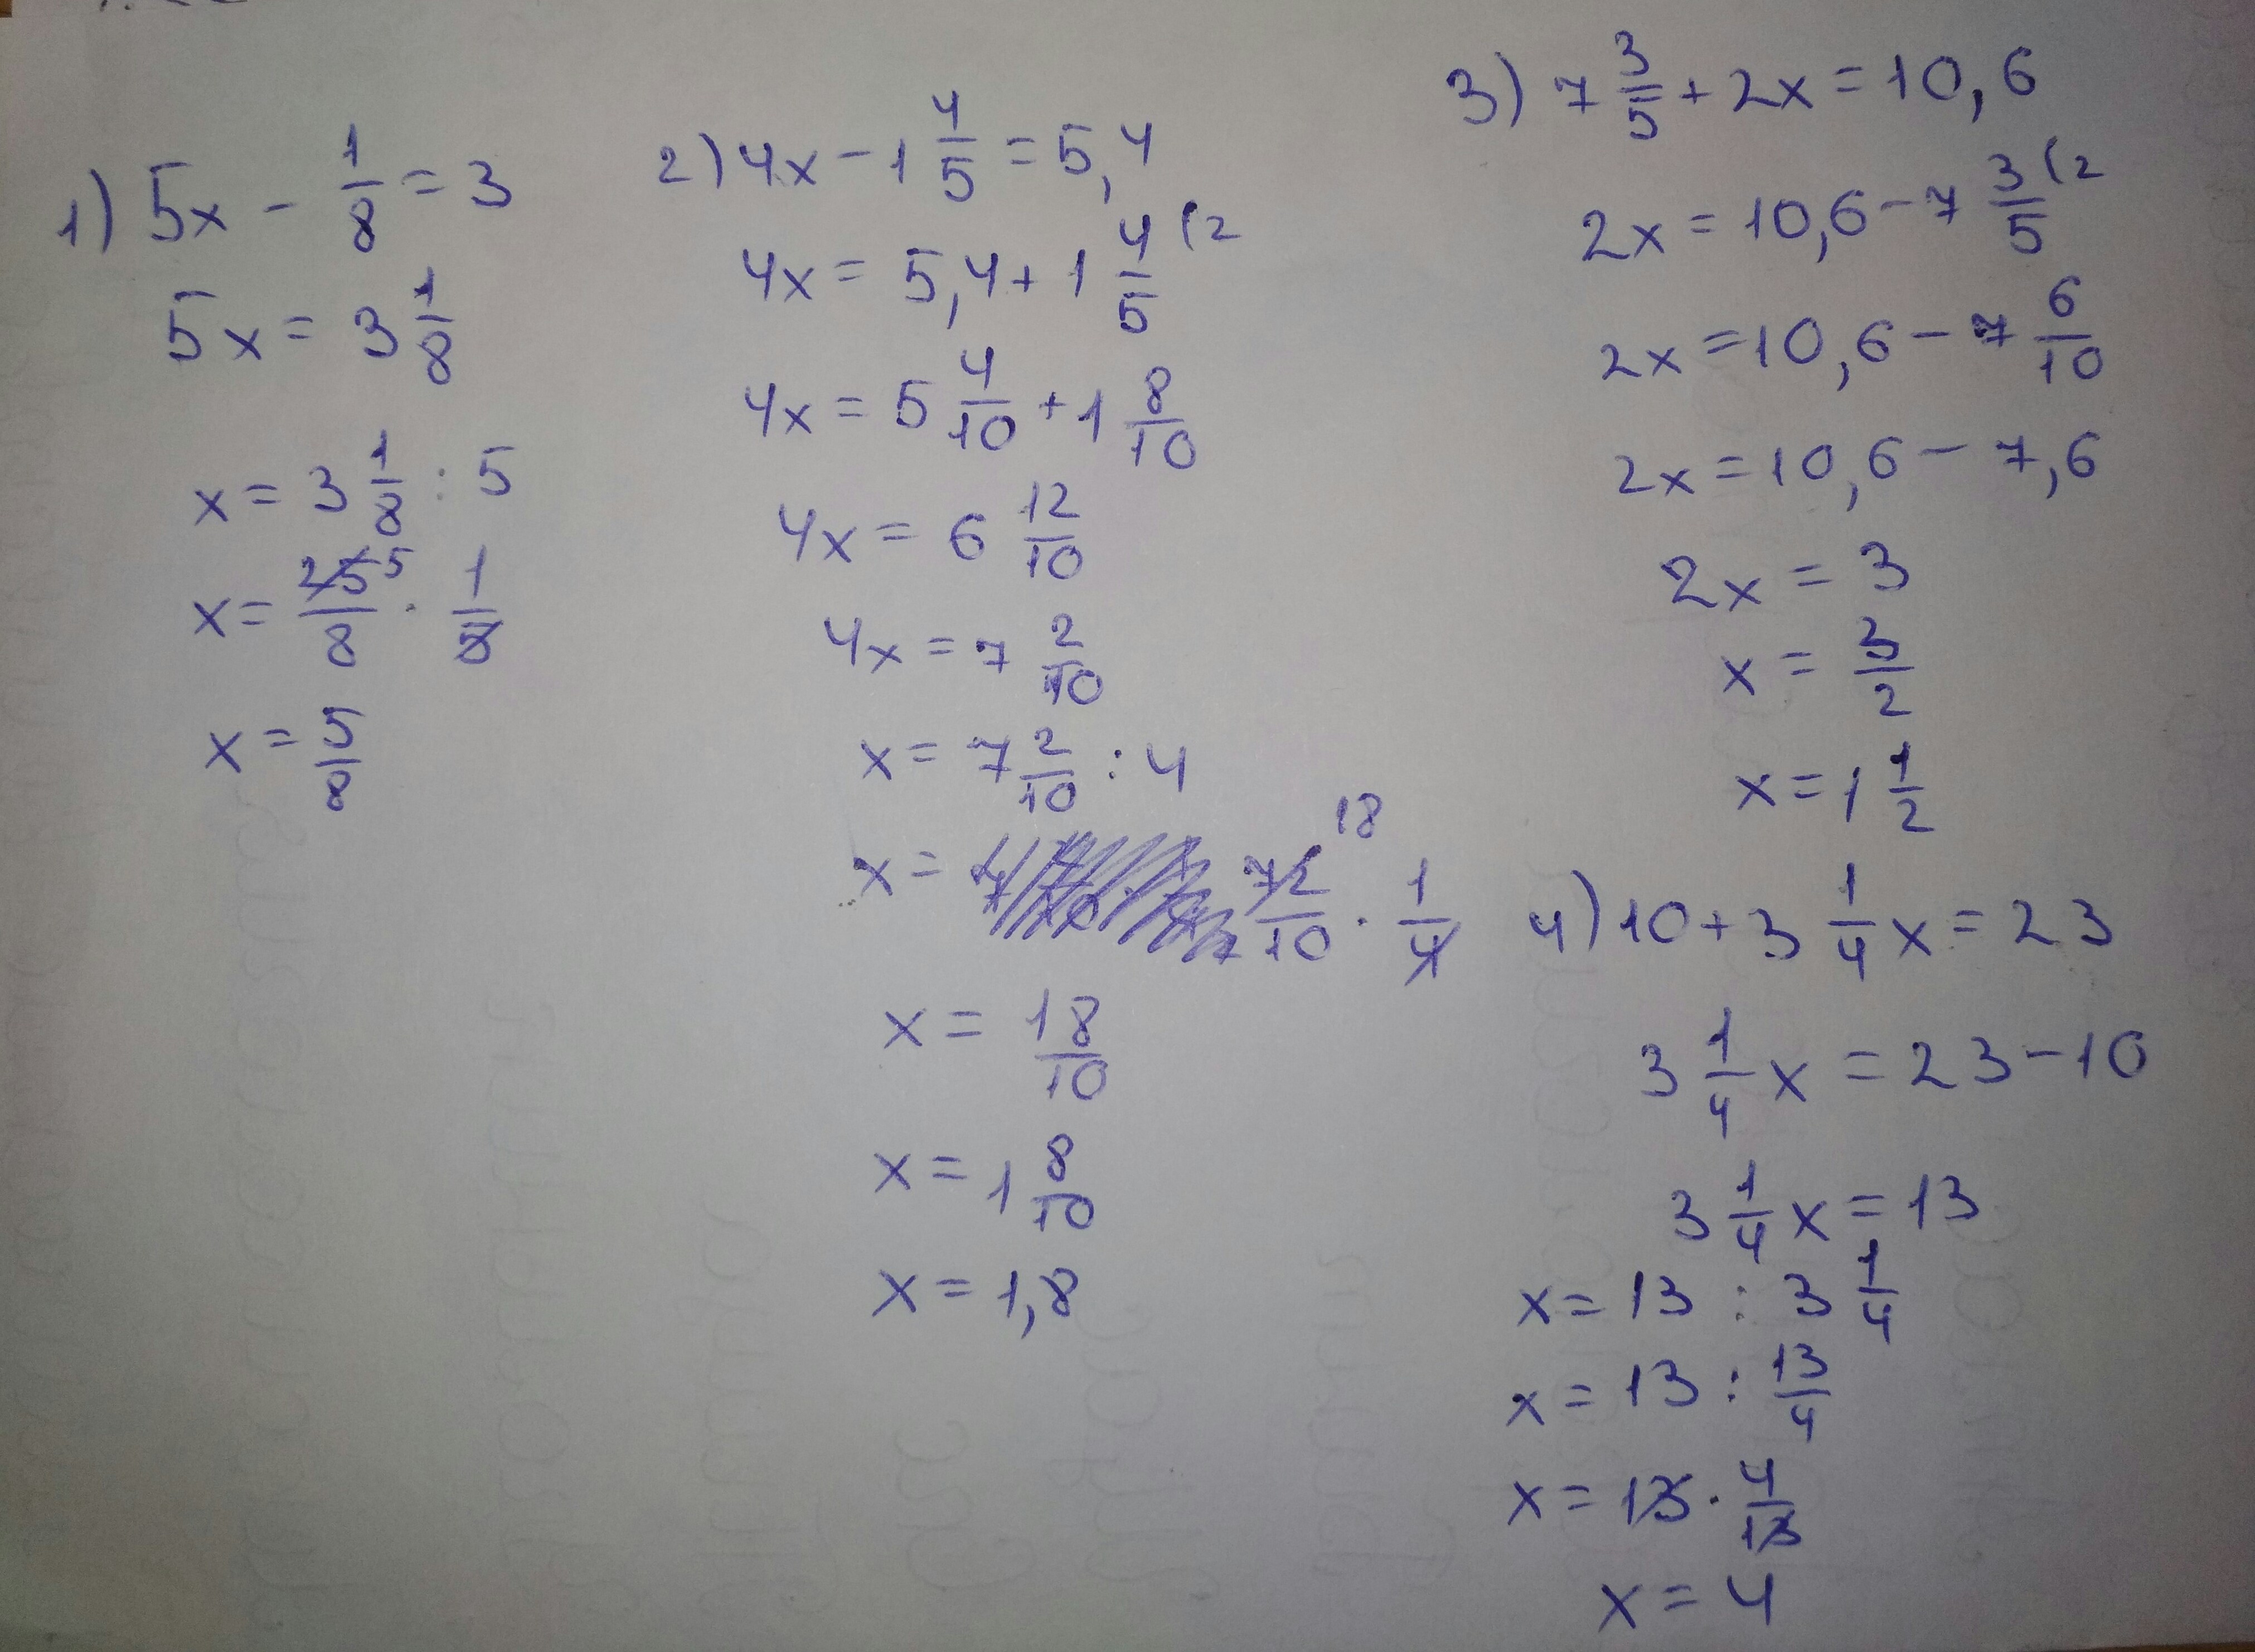 1) 5x - 1/8 = 3
5x = 3 1/8
x = 3 1/8 : 5
x = 25/8 5 · 1/5
x = 5/8
2) 4x - 1 4/5 = 5,4
4x = 5,4 + 1 4/5 (2
4x = 5 4/10 + 1 8/10
4x = 6 12/10
4x = 7 2/10
x = 7 2/10 : 4
x = 72/10 18 · 1/4
x = 18/10
x = 1 8/10
x = 1,8
3) 7 3/5 + 2x = 10,6
2x = 10,6 - 7 3/5 (2
2x = 10,6 - 7 6/10
2x = 10,6 - 7,6
2x = 3
x = 3/2
x = 1 1/2
4) 10 + 3 1/4 x = 23
3 1/4 x = 23 - 10
3 1/4 x = 13
x = 13 : 3 1/4
x = 13 : 13/4
x = 13 · 4/13
x = 4